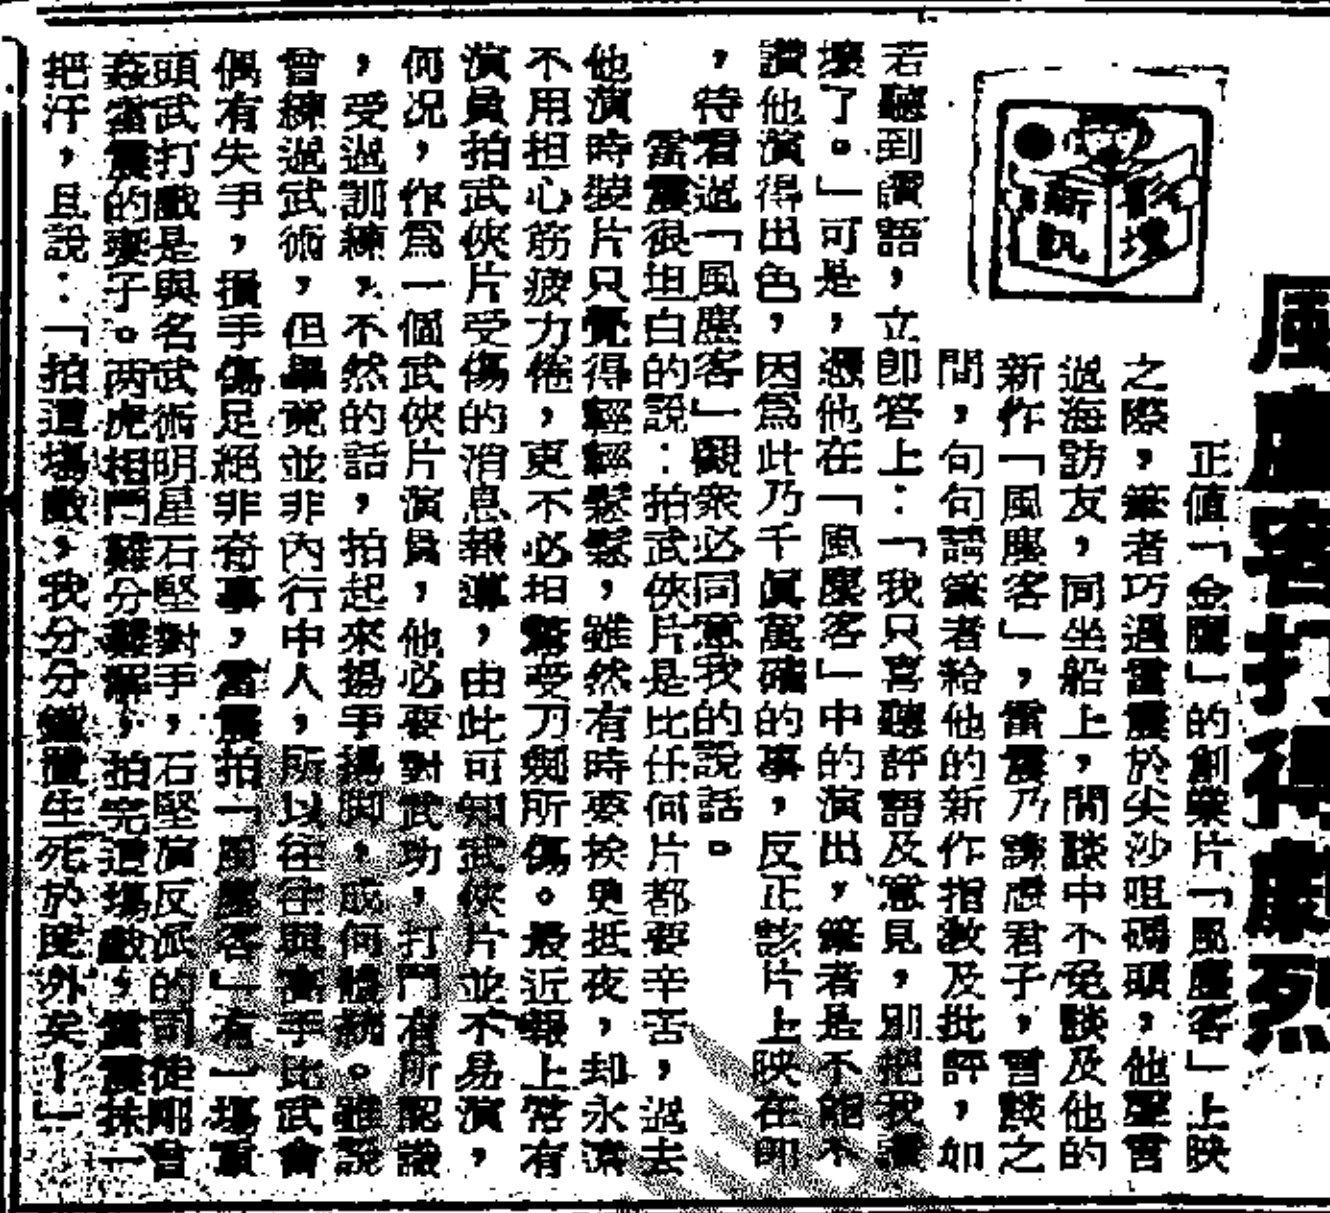 風塵客打得劇烈
影壇
新訊
正值「金鷹」的創業片「風塵客」上映
之際，筆者巧過雷震於尖沙咀碼頭，他
過海訪友，同坐船上，閒談中不免談及他的
新作「風塵客」，雷震乃謙虛君子，言談之
間，句句請筆者給他的新作指教及批評，如
若聽到讚語，立即答上：「我只喜聽評語及意見，別把我讚
壞了。」可是，憑他在「風塵客」中的演出，筆者是不能不
讚他演得出色，因為此乃千眞萬確的事，反正該片上映在即
，待看過「風塵客」觀衆必同意我的說話。
雷震很坦白的說：拍武俠片是比任何片都要辛苦，過去
他演時裝片只覺得輕輕鬆鬆，雖然有時要挨更抵夜，却永遠
不用担心筋疲力倦，更不必担驚受刀劍所傷。最近報上常有
演員拍武俠片受傷的消息報導，由此可知武俠片並不易演，
何况，作爲一個武俠片演員，他必要對武功，打鬥有所認識
，受過訓練，不然的話，拍起來揚手揚脚，成何體統。雖說
曾練過武術，但畢竟並非內行中人，所以往往與高手比武會
偶有失手，損手傷足絕非奇事，雷震拍「風塵客」有一場重
頭武打戲是與名武術明星石堅對手，石堅演反派的司徒剛
姦雷震的妻子。两虎相鬥難分難解，拍完這場戲，雷震抹一
把汗，且說：「拍這場戲，我分分鐘置生死於度外矣！」